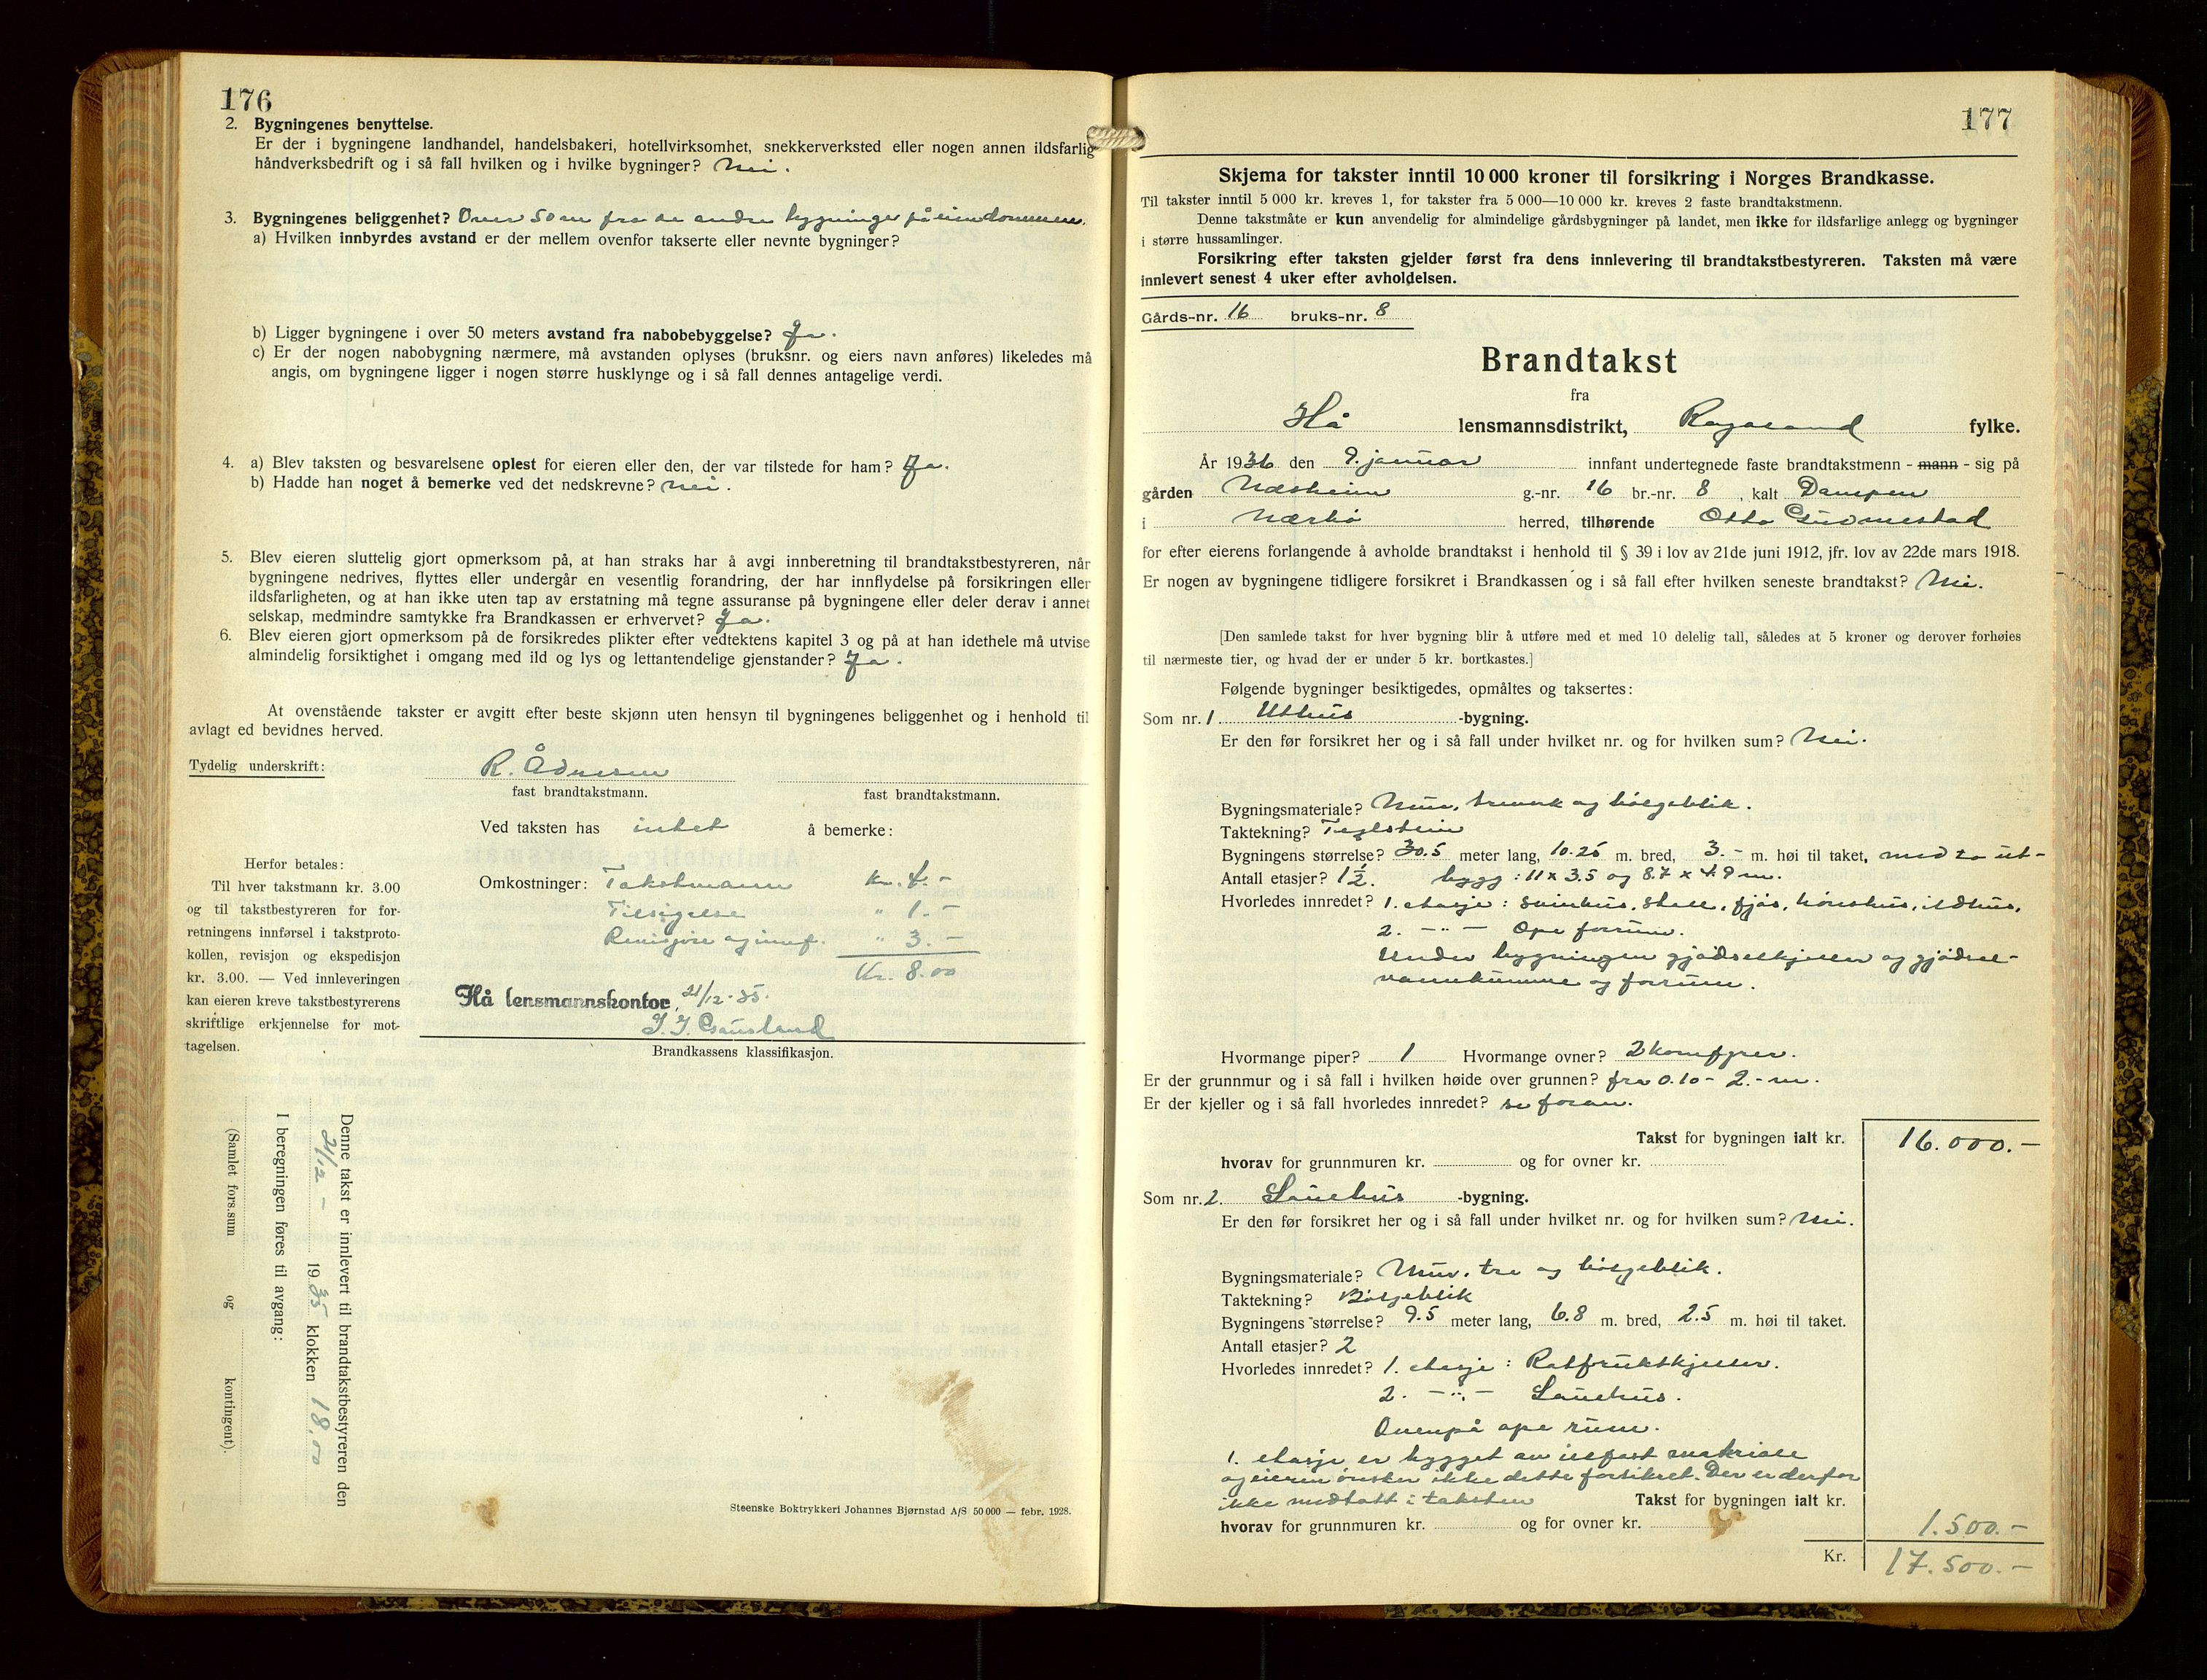 176
2. Bygningenes benyttelse.
Er der i bygningene landhandel, handelsbakeri, hotellvirksomhet, snekkerverksted eller nogen annen ildsfarlig
håndverksbedrift og i så fall hvilken og i hvilke bygninger? Nei.
3. Bygningenes beliggenhet? Over 50 m fra de andre bygninger på eiendommen.
a) Hvilken innbyrdes avstand er der mellem ovenfor takserte eller nevnte bygninger?
b) Ligger bygningene i over 50 meters avstand fra nabobebyggelse? Ja.
c) Er der nogen nabobygning nærmere, må avstanden oplyses (bruksnr. og eiers navn anføres) likeledes må
angis, om bygningene ligger i nogen større husklynge og i så fall dennes antagelige verdi.
4. a) Blev taksten og besvarelsene oplest for eieren eller den, der var tilstede for ham? Ja.
b) Hadde han noget å bemerke ved det nedskrevne? Nei.
5. Blev eieren sluttelig gjort opmerksom på, at han straks har å avgi innberetning til brandtakstbestyreren, når
bygningene nedrives, flyttes eller undergår en vesentlig forandring, der har innflydelse på forsikringen eller
ildsfarligheten, og at han ikke uten tap av erstatning må tegne assuranse på bygningene eller deler derav i annet
selskap, medmindre samtykke fra Brandkassen er erhvervet? Ja.
6. Blev eieren gjort opmerksom på de forsikredes plikter efter vedtektens kapitel 3 og på at han idethele må utvise
almindelig forsiktighet i omgang med ild og lys og lettantendelige gjenstander? Ja.
At ovenstående takster er avgitt efter beste skjønn uten hensyn til bygningenes beliggenhet og i henhold til
avlagt ed bevidnes herved.
Tydelig underskrift: R. Ådnesen
fast brandtakstmann. fast brandtakstmann.
Ved taksten has intet å bemerke:
Herfor betales:
Til hver takstmann kr. 3.00
og til takstbestyreren for for-
retningens innførsel i takstproto-
kollen, revisjon og ekspedisjon
kr. 3.00. — Ved innleveringen
kan eieren kreve takstbestyrerens
skriftlige erkjennelse for mot-
tagelsen.
Omkostninger: Takstmann kr. 4.-
Tilsigelse " 1.-
Revisjon og innf. " 3.-
Kr. 8.00
Hå lensmannskontor, 21/12-35.
J. J. Gausland
Brandkassens klassifikasjon.
Denne takst er innlevert til brandtakstbestyreren den
21/12 - 1935 klokken 18,00
I beregningen føres til avgang:
(Samlet fors.sum og kontingent).
Steenske Boktrykkeri Johannes Bjørnstad A/S 50 000 — febr. 1928.
177
Skjema for takster inntil 10 000 kroner til forsikring i Norges Brandkasse.
Til takster inntil 5 000 kr. kreves 1, for takster fra 5 000—10 000 kr. kreves 2 faste brandtakstmenn.
Denne takstmåte er kun anvendelig for almindelige gårdsbygninger på landet, men ikke for ildsfarlige anlegg og bygninger
i større hussamlinger.
Forsikring efter taksten gjelder først fra dens innlevering til brandtakstbestyreren. Taksten må være
innlevert senest 4 uker efter avholdelsen.
Gårds-nr. 16 bruks-nr. 8
Brandtakst
fra
Hå lensmannsdistrikt, Rogaland fylke.
År 1936 den 9. januar innfant undertegnede faste brandtakstmenn - mann - sig på
gården Næsheim g.-nr. 16 br.-nr. 8, kalt Dampen
i Nærbø herred, tilhørende Otto Gudmestad
for efter eierens forlangende å avholde brandtakst i henhold til § 39 i lov av 21de juni 1912, jfr. lov av 22de mars 1918.
Er nogen av bygningene tidligere forsikret i Brandkassen og i så fall efter hvilken seneste brandtakst? Nei.
[Den samlede takst for hver bygning blir å utføre med et med 10 delelig tall, således at 5 kroner og derover forhøies
til nærmeste tier, og hvad der er under 5 kr. bortkastes.]
Følgende bygninger besiktigedes, opmåltes og taksertes:
Som nr. 1 Uthus -bygning.
Er den før forsikret her og i så fall under hvilket nr. og for hvilken sum? Nei.
Bygningsmateriale? Mur, treverk og bølgeblik.
Taktekning? Teglstein
Bygningens størrelse? 30.5 meter lang, 10.25 m. bred, 3.- m. høi til taket, med to ut-
Antall etasjer? 1½. bygg : 11 x 3.5 og 8.7 x 4.9 m.
Hvorledes innredet? 1. etasje : svinhus, stall, fjøs, hønshus, ildhus,
2. -"- Ope forrum.
Under bygningen gjødselkjeller og gjødsel-
vannkumme og forrum.
Hvormange piper? 1 Hvormange ovner? 2 komfyrer.
Er der grunnmur og i så fall i hvilken høide over grunnen? fra 0.10 - 2.- m.
Er der kjeller og i så fall hvorledes innredet? se foran.
Takst for bygningen ialt kr. 16.000.-
hvorav for grunnmuren kr. og for ovner kr.
Som nr. 2. Lauehus -bygning.
Er den før forsikret her og i så fall under hvilket nr. og for hvilken sum? Nei.
Bygningsmateriale? Mur, tre og bølgeblik.
Taktekning? Bølgeblik
Bygningens størrelse? 9.5 meter lang, 6.8 m. bred, 2.5 m. høi til taket.
Antall etasjer? 2
Hvorledes innredet? 1. etasje : Rotfruktkjeller.
2. -"- Lauehus.
Ovenpå ope rum.
1. etasje er bygget av ildfast materiale
og eieren ønsker ikke dette forsikret. Der er derfor
ikke medtatt i taksten Takst for bygningen ialt kr.
hvorav for grunnmuren kr. og for ovner kr. 1.500.-
Kr. 17.500.-